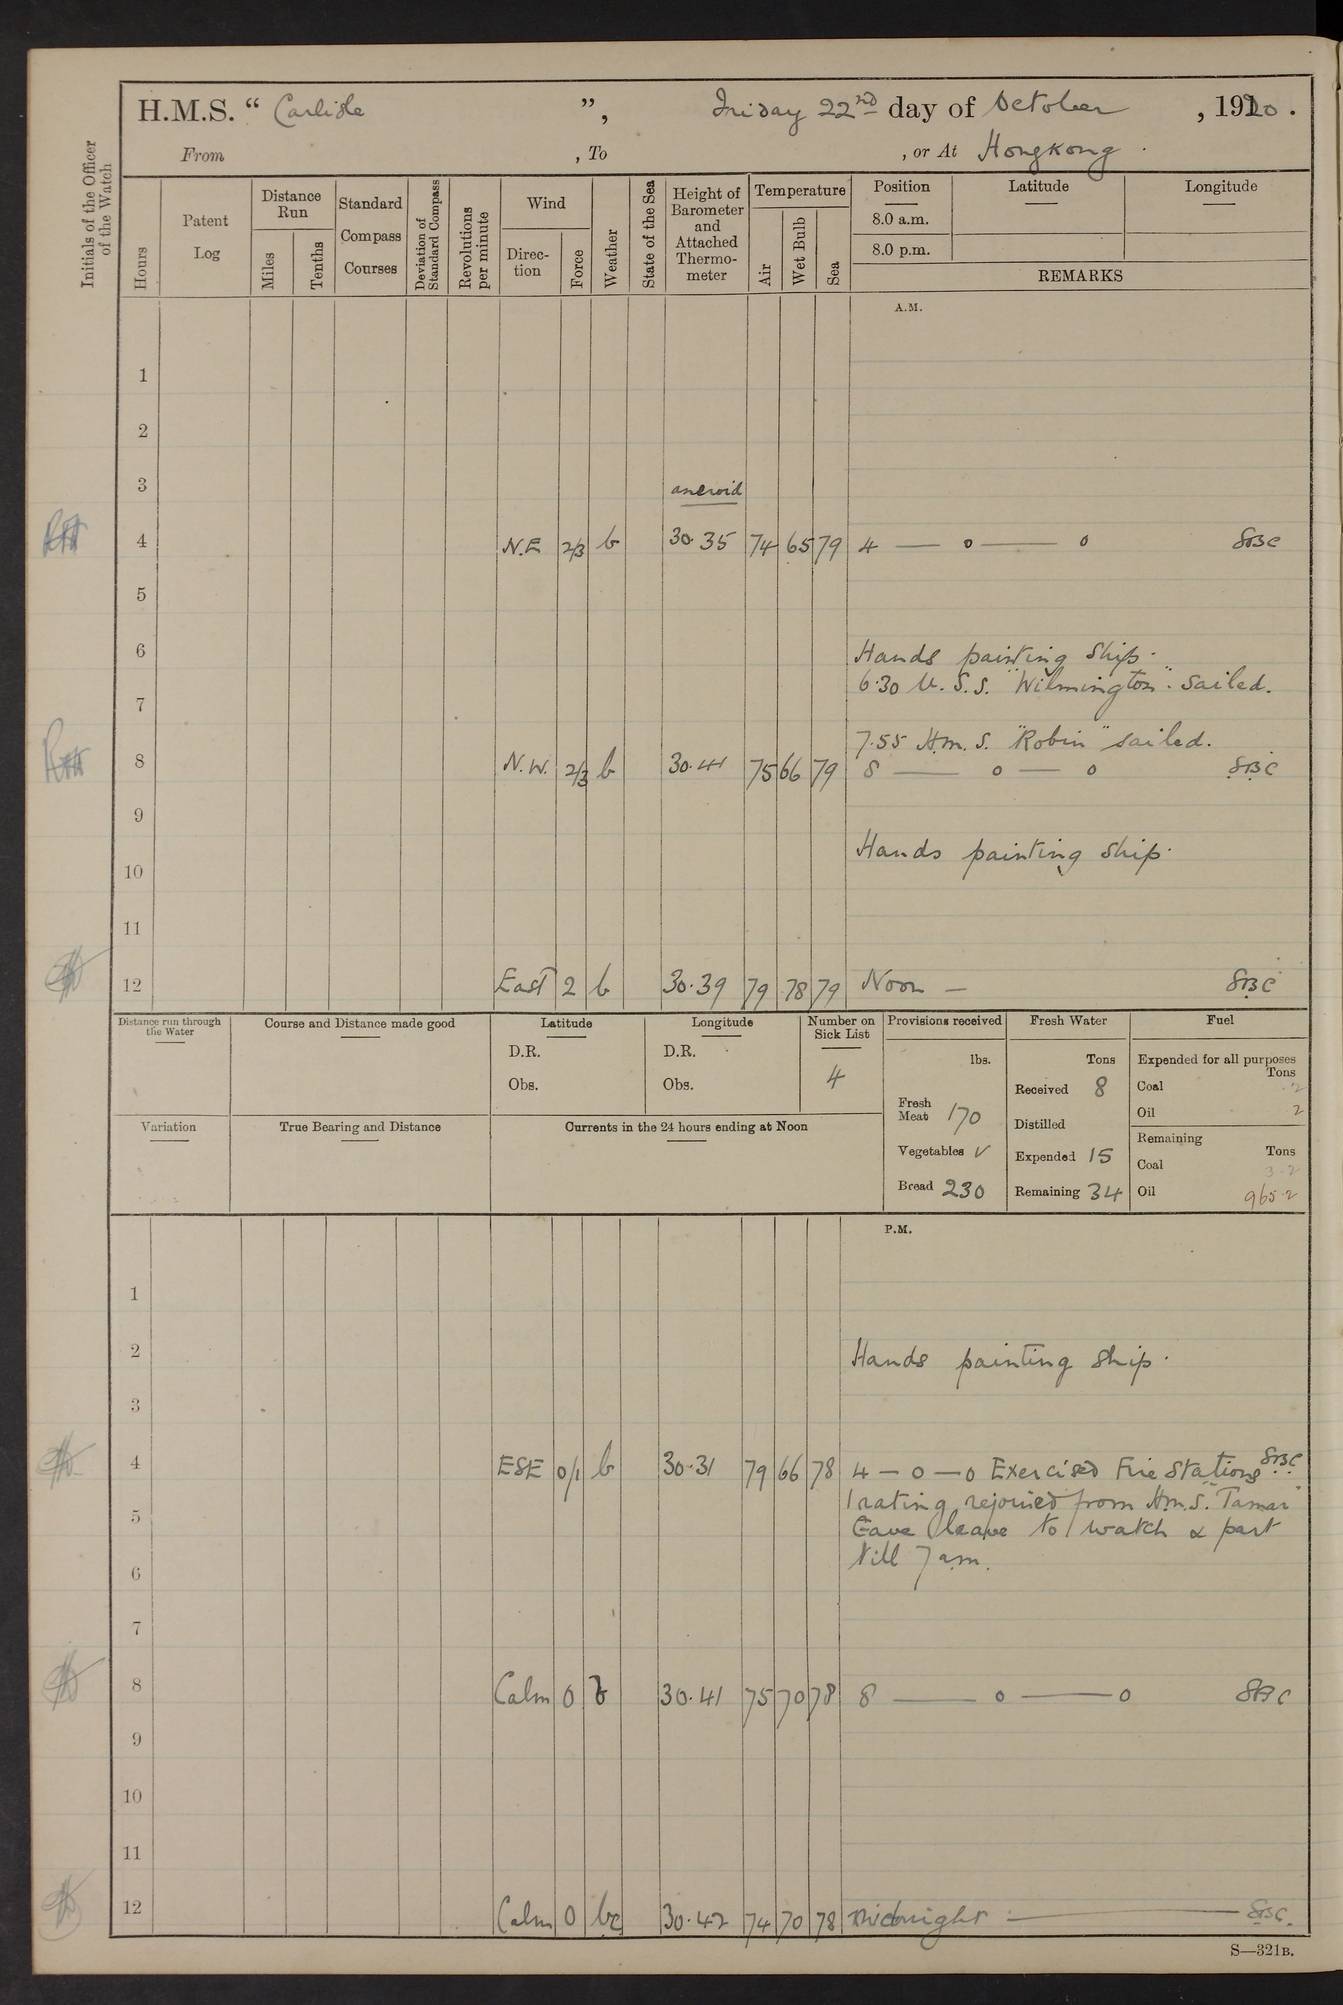 H.M.S. “ Carlisle ”, Friday 22nd day of October , 1920 .
From , To , or At Hongkong .
Initials of the Officer of the Watch
Hours
Patent Log
Distance Run
Miles
Tenths
Standard Compass Courses
Deviation of Standard Compass
Revolutions per minute
Wind
Direc-tion
Force
Weather
State of the Sea
Height of Barometer and Attached Thermo-meter
Temperature
Air
Wet Bulb
Sea
Position
8.0 a.m.
8.0 p.m.
Latitude
Longitude
REMARKS
A.M.
1
2
3 aneroid
4 N.E 2/3 b 30.35 74 65 79 4 — o — o SBC
5
6 Hands painting ship.
6.30 U.S.S. "Wilmington". sailed.
7
7.55 H.m.S. "Robin" sailed.
8 N.W. 2/3 b 30.41 75 66 79 8 — o — o SBC
9
Hands painting ship.
10
11
12 East 2 b 30.39 79 78 79 Noon — SBC
Distance run through the Water
Course and Distance made good
Latitude
D.R.
Obs.
Longitude
D.R.
Obs.
Number on Sick List
4
Variation
True Bearing and Distance
Currents in the 24 hours ending at Noon
Provisions received
lbs.
Fresh Meat 170
Vegetables v
Bread 230
Fresh Water
Tons
Received 8
Distilled
Expended 15
Remaining 34
Fuel
Expended for all purposes
Tons
Coal .2
Oil 2
Remaining
Tons
Coal 3.2
Oil 965.2
P.M.
1
2 Hands painting ship.
3
4 ESE 0/1 b 30.31 79 66 78 4 — o — o Exercised Fire Stations SBC
1 rating rejoined from H.m.S. "Tamar"
5 Gave leave to watch & part
till 7 am.
6
7
8 Calm 0 b 30.41 75 70 78 8 — o — o SBC
9
10
11
12 Calm 0 bc 30.42 74 70 78 Midnight — SBC.
S—321B.